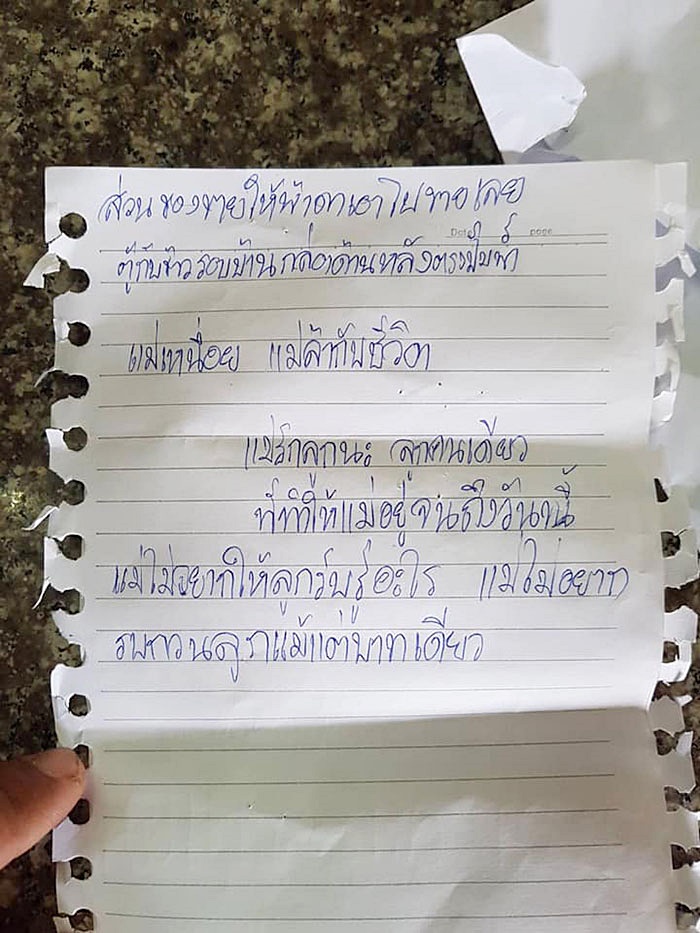 ส่วนของขายให้ฟ้าดาเอาไปขายเลย
ตู้กับข้าวรอบบ้านกล่องด้านหลังตรงปั๊มน้ำ
แม่เหนื่อย แม่ล้ากับชีวิต
แม่รักลูกนะ ลูกคนเดียว
ที่ทำให้แม่อยู่จนถึงวันนี้
แม่ไม่อยากให้ลูกรับรู้อะไร แม่ไม่อยาก
รบกวนลูกแม้แต่บาทเดียว